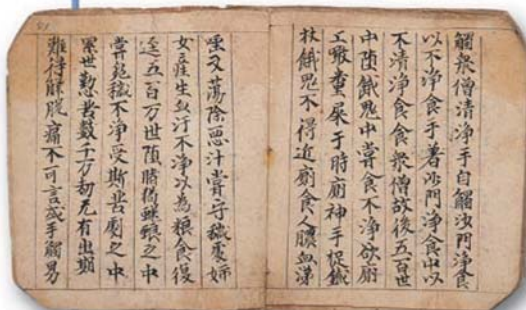 觸衆僧清淨手自觸沙門淨食
以不淨食手著沙門淨食中以
不清淨食食衆僧故後五百世
中墮餓鬼中嘗食不淨欲廁
上噉糞屎于時廁神手捉鐵
杖餓鬼不得近廁食人膿血涕
唾又蕩除惡汁嘗守穢處婦
女産生血汙不淨以為粮食復
逕五百万世墮
嘗
不淨受斯苦劇之中
累世懃苦數千万劫无有出期
難得解脫痛不可言或手觸男